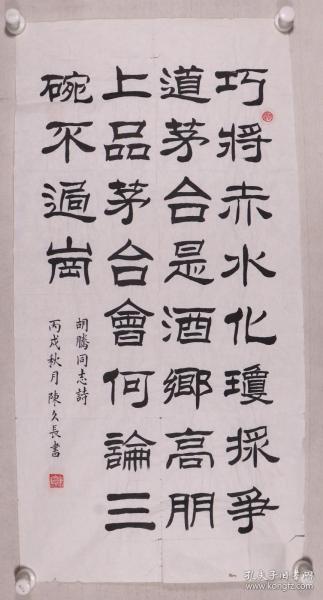 巧將赤水化瓊漿爭
道茅台是酒鄉高朋
上品茅台會何論三
碗不過崗
胡騰同志詩
丙戌秋月陳久長書
孔夫子旧书网